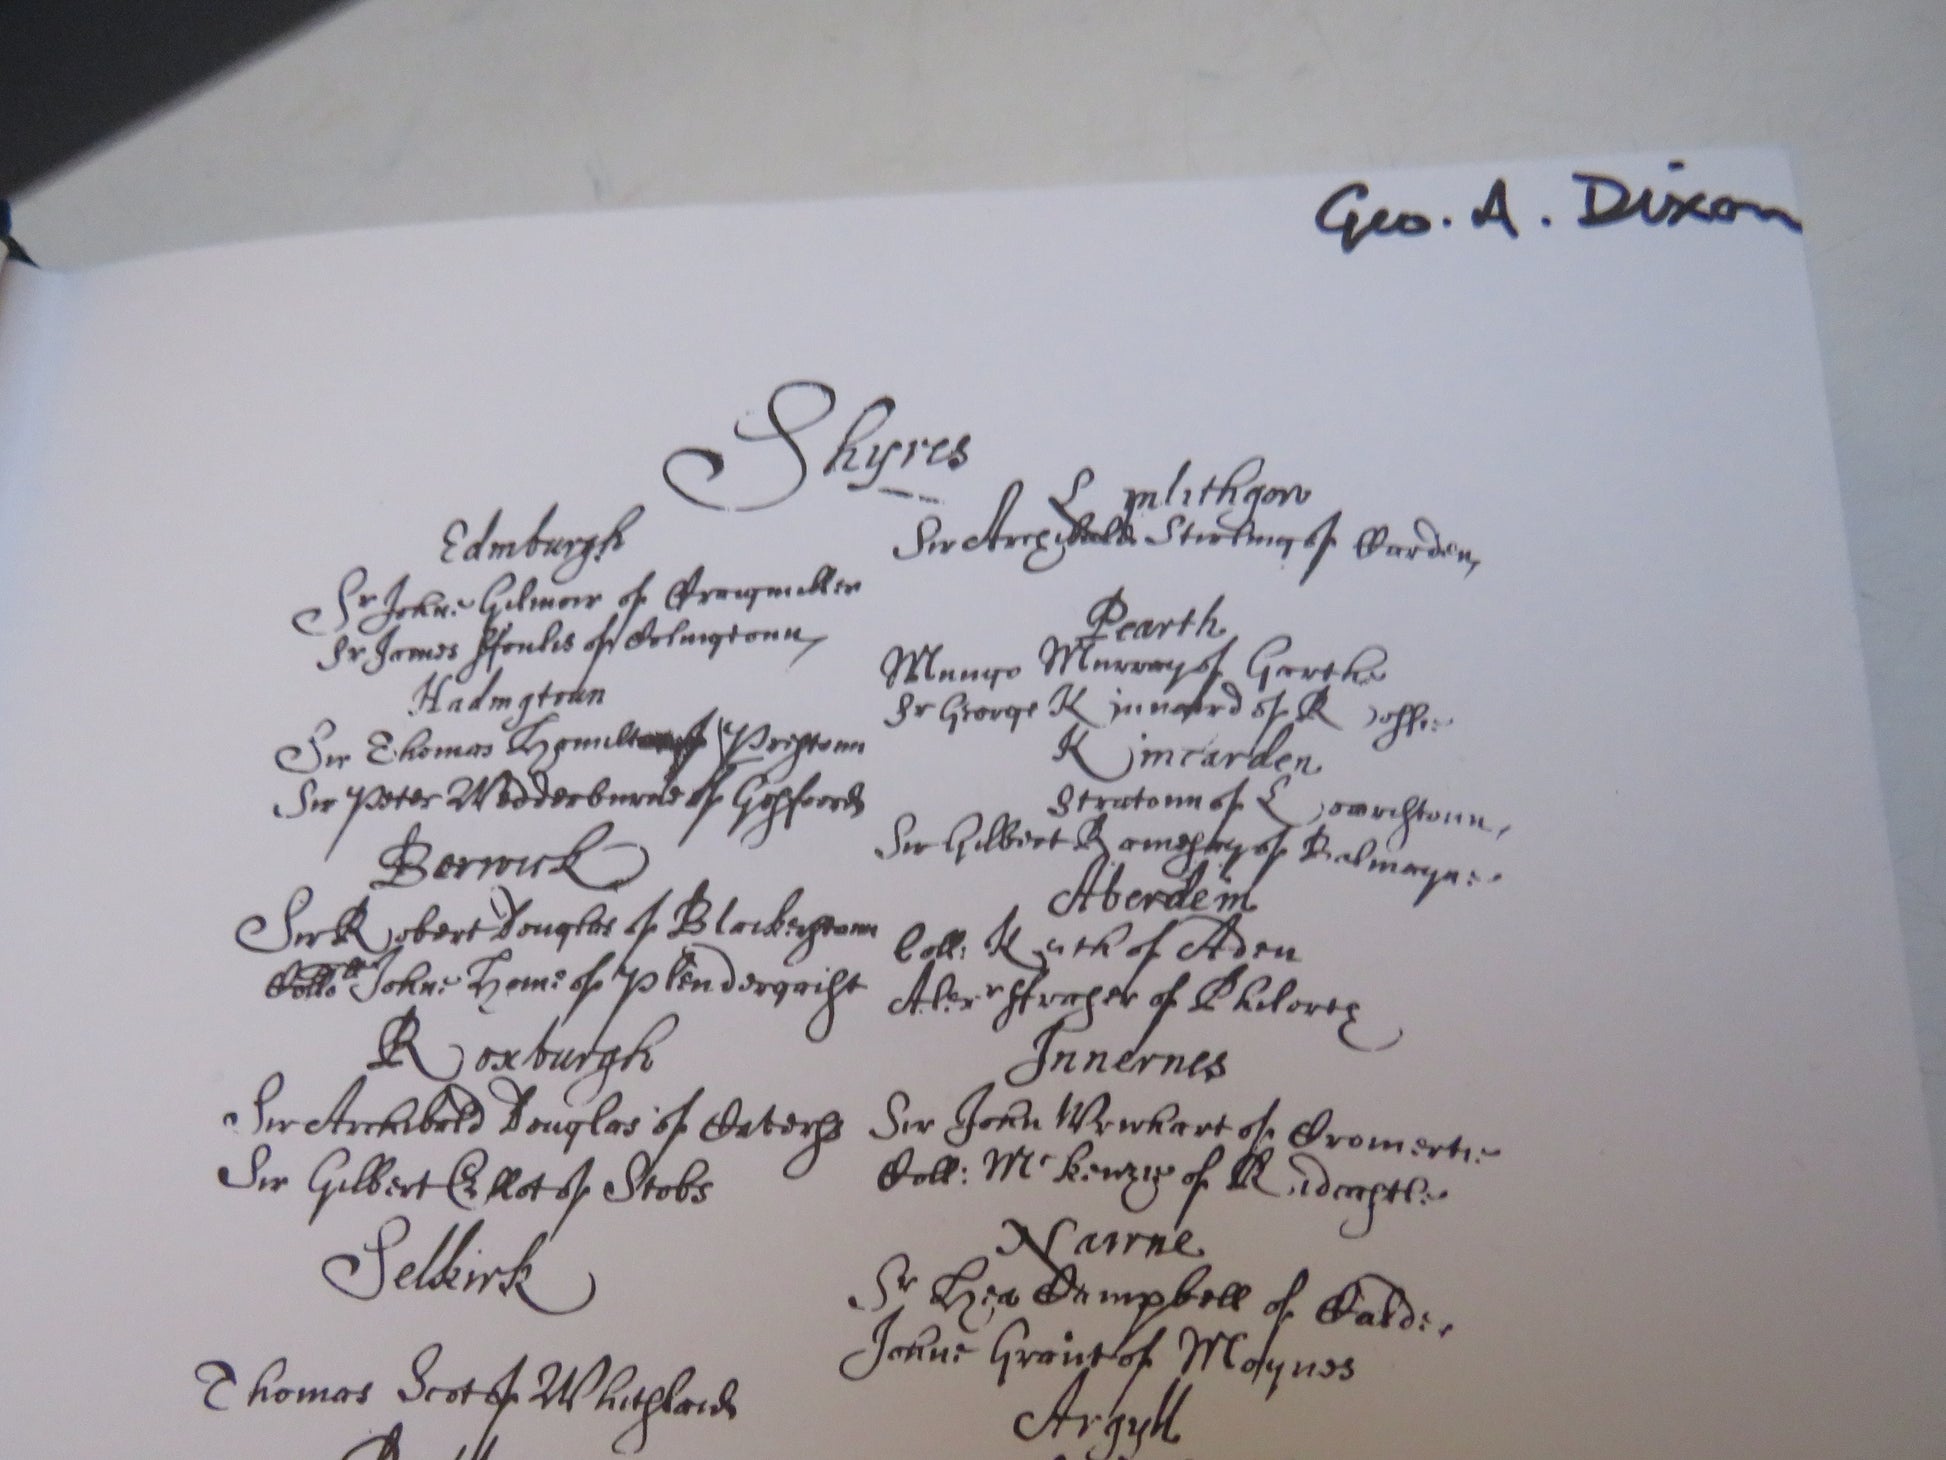 Geo. A. Dixon
Shyres
Edinburgh
Sr Johne Gilmoir of Craigmiller
Sr James ffoulis of Colingtoun
Hadingtoun
Sir Thomas Hamiltoun of Prestoun
Sir Peter Wedderburne of Gosfoord
Berwick
Sir Robert Douglas of Blackerstoun
Johne Home of Plendergaist
Roxburgh
Sir Archibald Douglas of Caverss
Sir Gilbert Ellot of Stobs
Selkirk
Thomas Scot of Whitslaid
Linlithgow
Sir Archibald Stirling of Carden
Pearth
Mungo Murray of Garth
Sr George Kinnaird of Rossie
Kincarden
Stratoun of
Sir Gilbert Ramesay of Balmayne
Aberdein
Coll: Keith of Aden
Alexr ffraser of Philorth
Innernes
Sir John Wrwhart of Cromertie
Coll: McKenzie of Ridcastle
Nairne
Sr Hew Campbell of Calder
Johne Grant of Moynes
Argyll